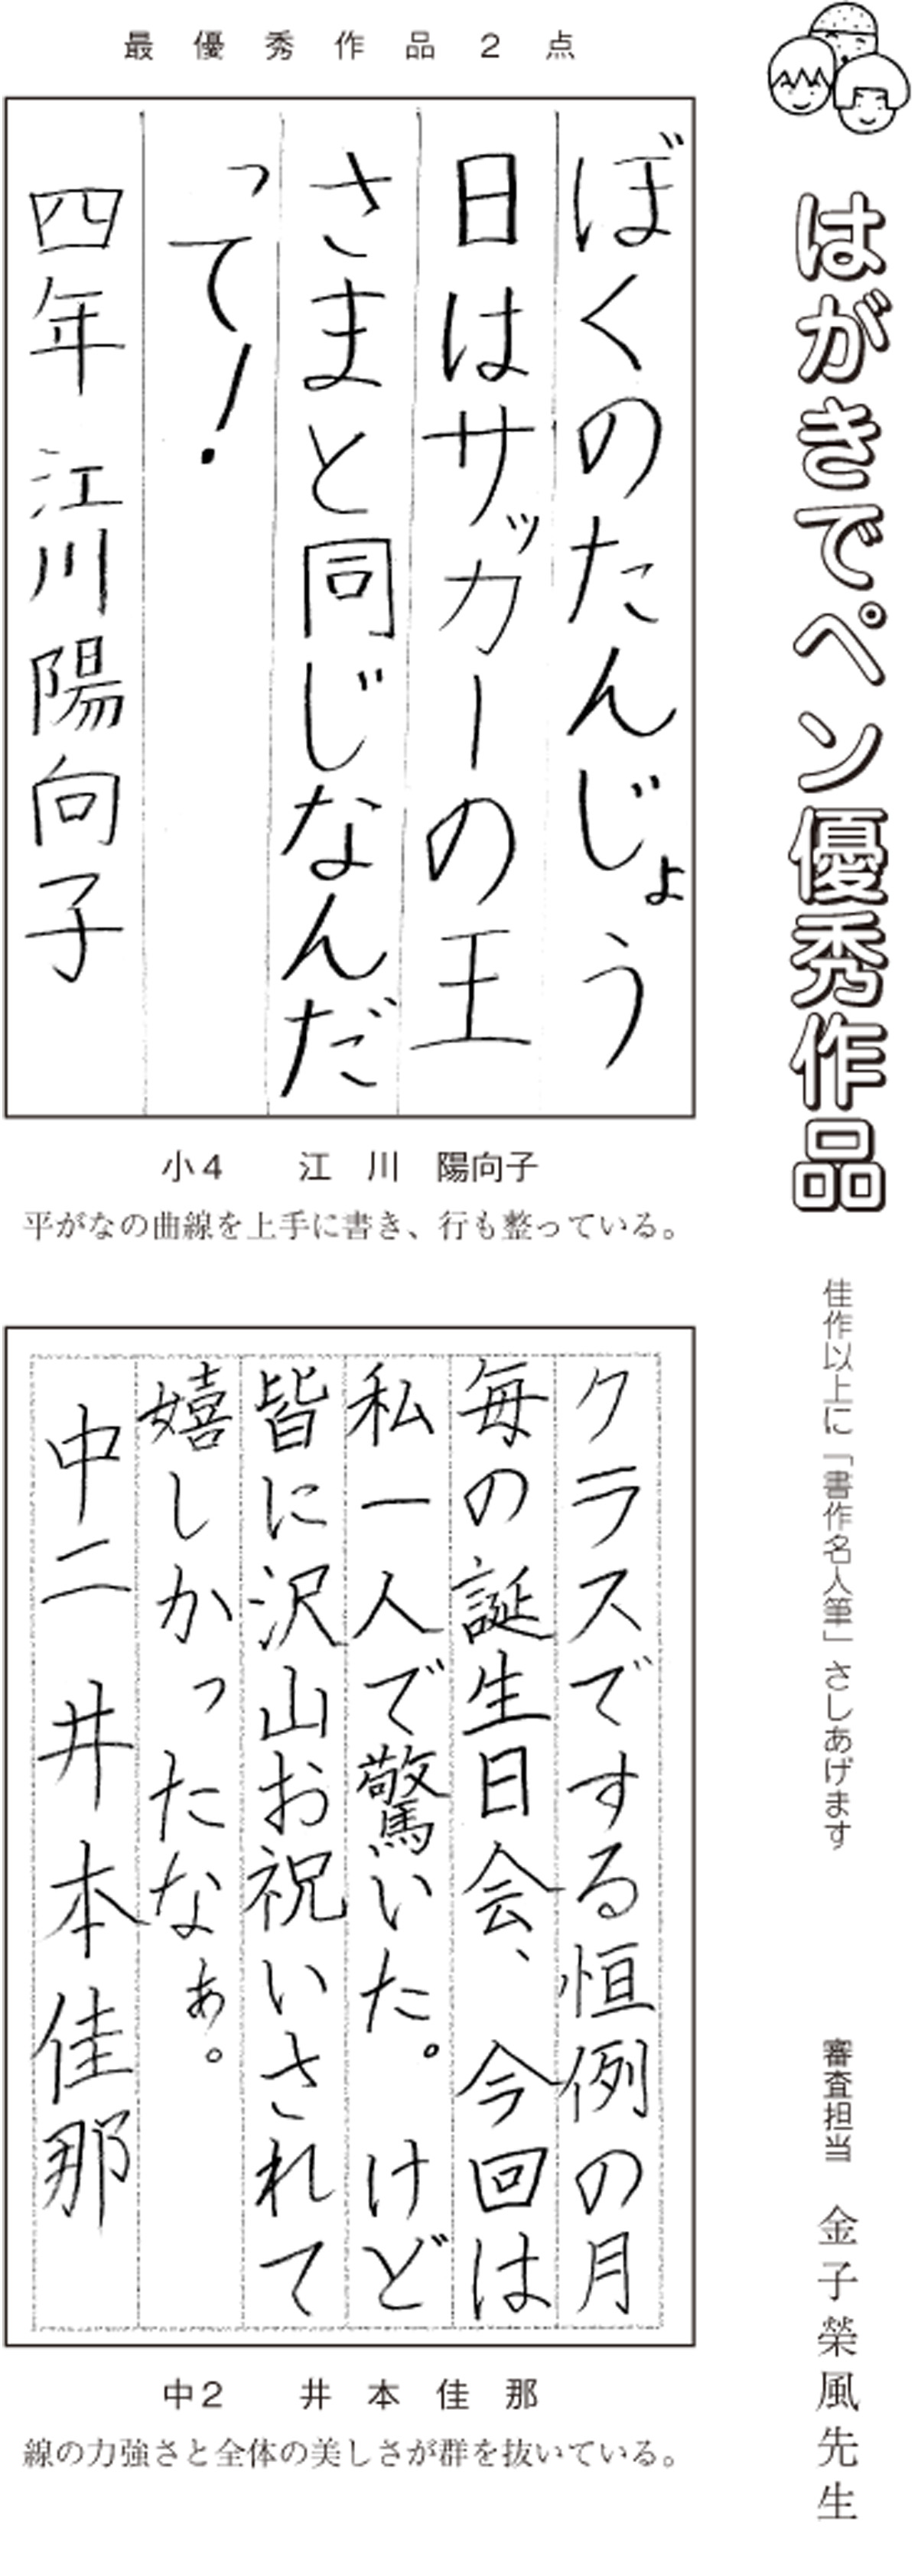 はがきでペン優秀作品
佳作以上に「書作名人筆」さしあげます
審査担当　金子榮風先生
最優秀作品2点
ぼくのたんじょう
日はサッカーの王
さまと同じなんだ
って！
四年　江川陽向子
小4　江川　陽向子
平がなの曲線を上手に書き、行も整っている。
クラスでする恒例の月
毎の誕生日会、今回は
私一人で驚いた。けど
皆に沢山お祝いされて
嬉しかったなぁ。
中二　井本佳那
中2　井本佳那
線の力強さと全体の美しさが群を抜いている。